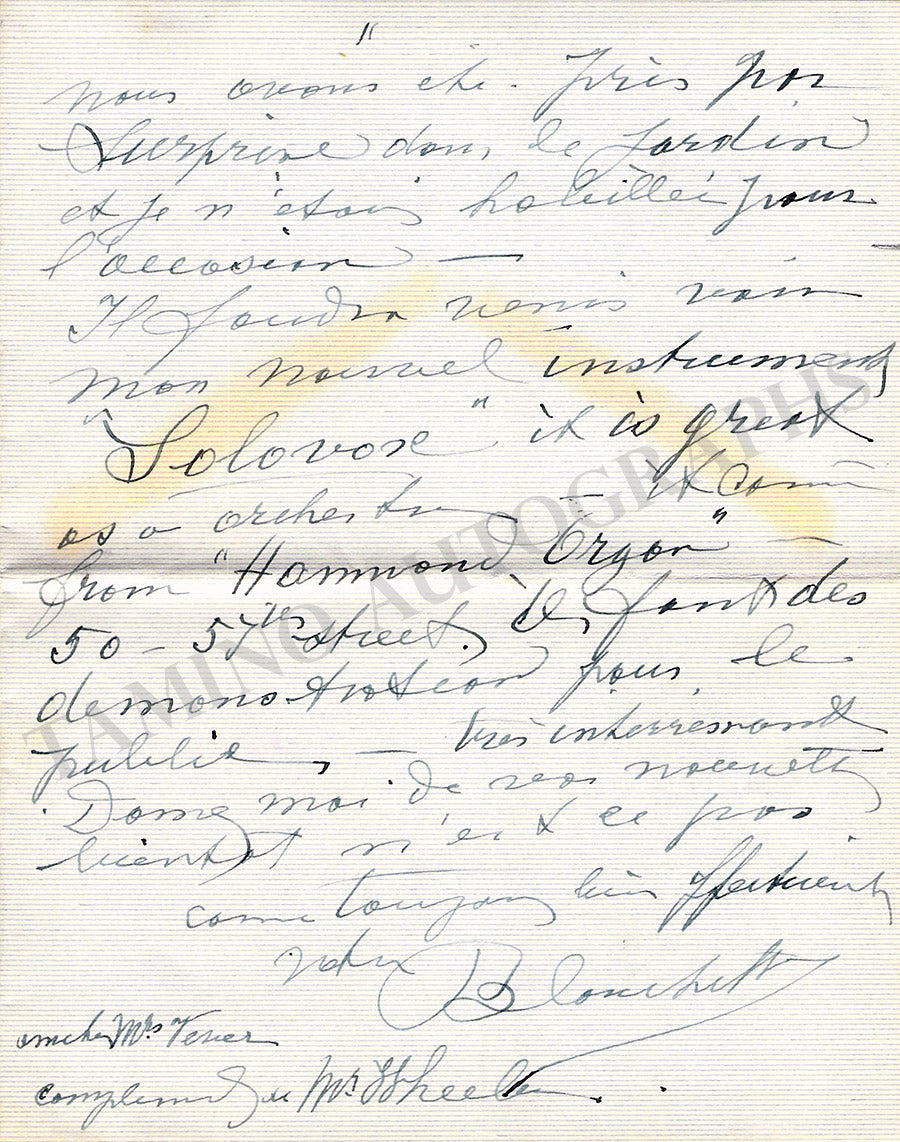 "
nous avons été. Pris par
Surprise dans le Jardin
et je n'étais habillée pour
l'occasion —
Il faudra venir voir
mon nouvel instrument
"Solovox" it is great
as a orchestra — it come
from "Hammond Organ" —
50 - 57th street, ils font des
demonstration pour le
public, — très interressant
Donnez moi de vos nouvelles
bientot n'est ce pas
comme toujours bien affectueusement
votre Blanchette
Mrs Tener
compliments de Mr Wheeler.
TAMINO AUTOGRAPHS